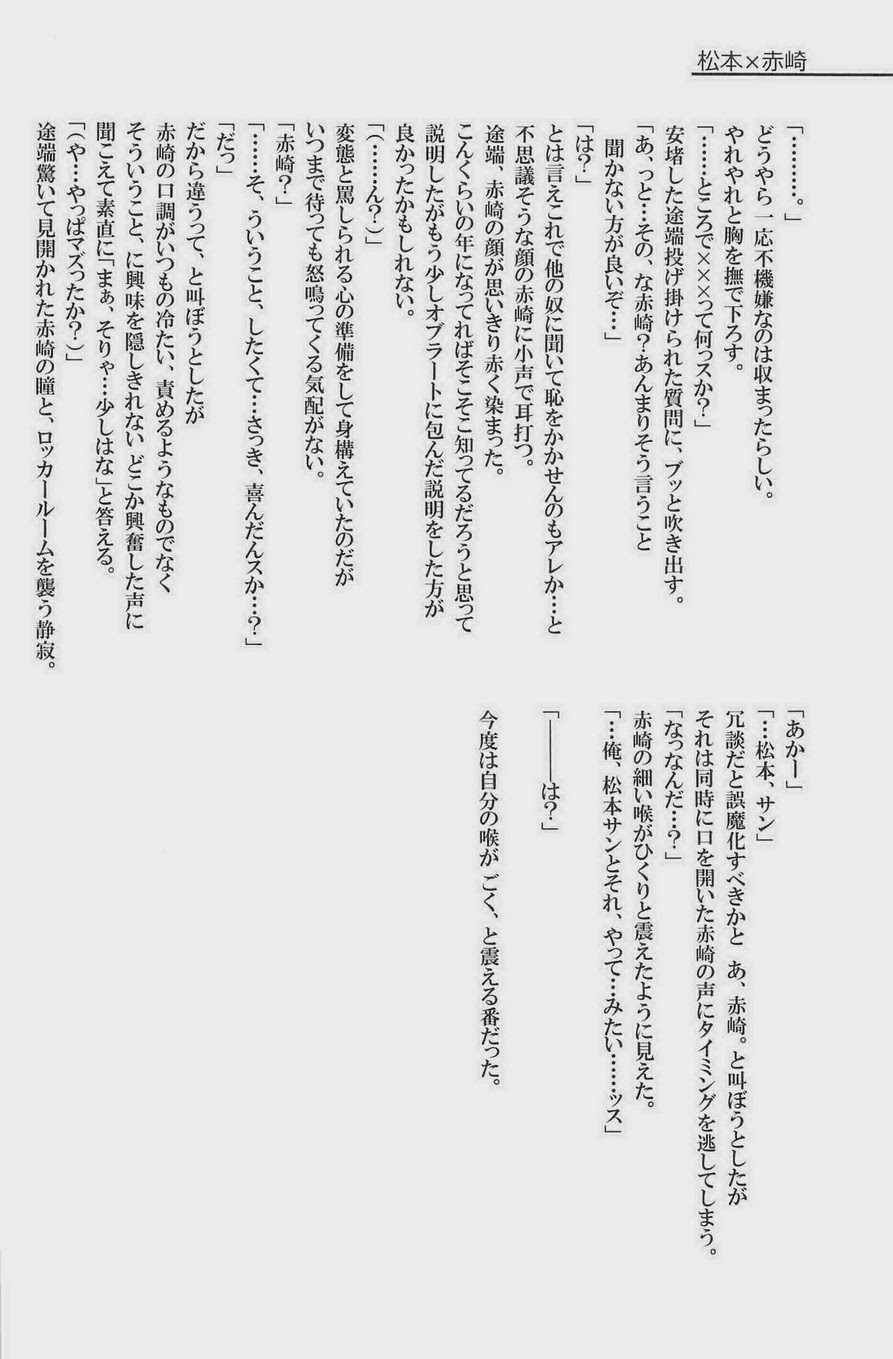 松本×赤崎
「………。」
どうやら一応不機嫌なのは収まったらしい。
やれやれと胸を撫で下ろす。
「……ところで×××って何っスか？」
安堵した途端投げ掛けられた質問に、ブッと吹き出す。
「あ、っと…その、な赤崎？あんまりそう言うこと
聞かない方が良いぞ…」
「は？」
とは言えこれで他の奴に聞いて恥をかかせんのもアレか…と
不思議そうな顔の赤崎に小声で耳打つ。
途端、赤崎の顔が思いきり赤く染まった。
こんくらいの年になってればそこそこ知ってるだろうと思って
説明したがもう少しオブラートに包んだ説明をした方が
良かったかもしれない。
「（……ん？）」
変態と罵しられる心の準備をして身構えていたのだが
いつまで待っても怒鳴ってくる気配がない。
「赤崎？」
「……そ、ういうこと、したくて…さっき、喜んだんスか…？」
「だっ」
だから違うって、と叫ぼうとしたが
赤崎の口調がいつもの冷たい、責めるようなものでなく
そういうこと、に興味を隠しきれない どこか興奮した声に
聞こえて素直に「まぁ、そりゃ…少しはな」と答える。
「（や…やっぱマズったか？）」
途端驚いて見開かれた赤崎の瞳と、ロッカールームを襲う静寂。
「あかー」
「…松本、サン」
冗談だと誤魔化すべきかと　あ、赤崎。と叫ぼうとしたが
それは同時に口を開いた赤崎の声にタイミングを逃してしまう。
「なっなんだ…？」
赤崎の細い喉がひくりと震えたように見えた。
「…俺、松本サンとそれ、やって…みたい……ッス」
「――は？」
今度は自分の喉が ごく、と震える番だった。